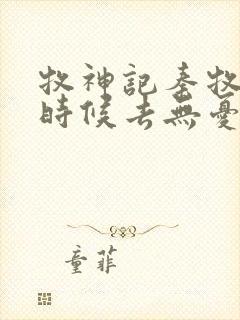 牧神記秦牧
時候去無憂
童菲